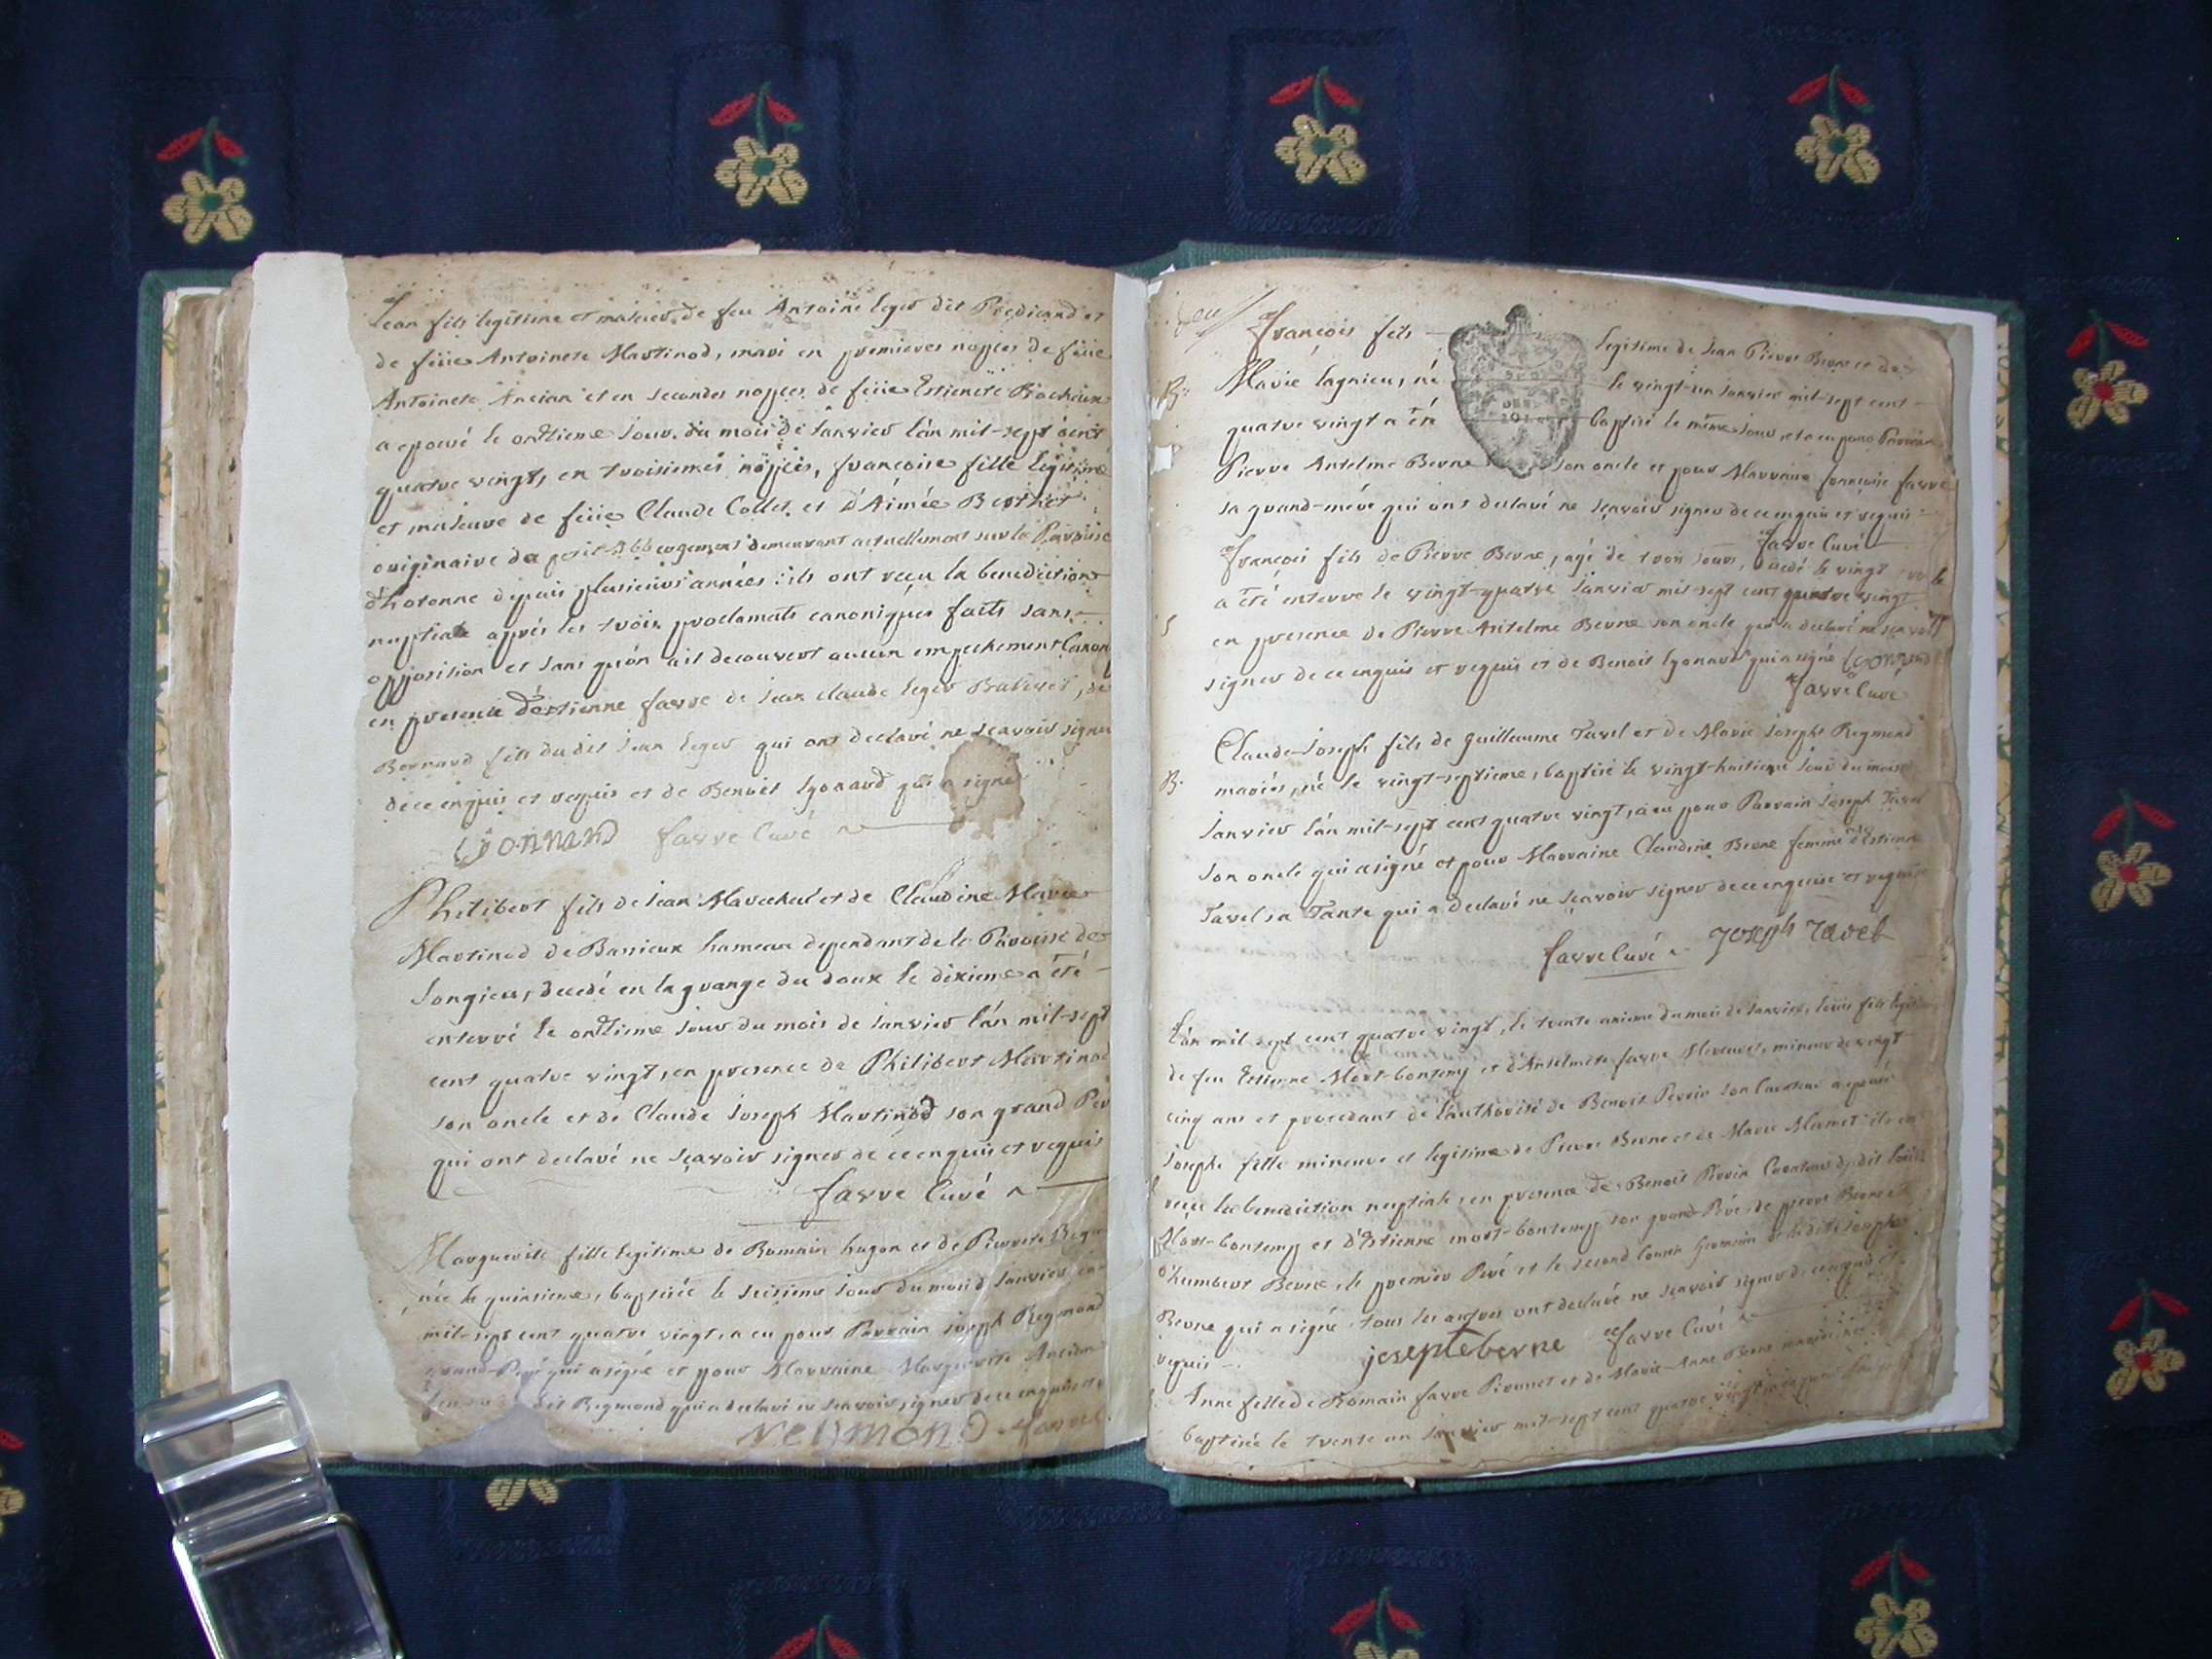 Jean fils legitime et majeur de feu Antoine leger dit Predicand et
de feüe Antoinete Martinod, mari en premieres nopces de feüe
Antoinete Ancian et en secondes nopces de feüe Estienete
a epousé le onzieme jour du mois de janvier l'an mil-sept cent
quatre vingt, en troisiemes nopces, françoise fille legitime
et majeure de feüe Claude Collet et d'Aimée Berthet
originaire du petit Abbergement demeurant actuellement sur la Paroisse
d'hotonne depuis plusieurs années : ils ont reçu la benediction
nuptiale après les trois proclamats canoniques faits sans
opposition et sans qu'on ait decouvert aucun empechement Canon
en presence d'éstienne favre de jean claude leger , de
Bernard fils dudit jean leger qui ont declaré ne sçavoir signer
de ce enquis et requis et de Benoit lyonard qui a signé
lyonnard favre Curé
Philibert fils de jean Marechal et de Claudine Marie
Martinod de Bassieux hameau dependant de la Paroisse de
Songieu, decedé en la grange du doux le dixieme a été
enterré le onzieme jour du mois de janvier l'an mil-sept
cent quatre vingt, en presence de Philibert Martinod
son oncle et de Claude joseph Martinod son grand Per
qui ont declaré ne sçavoir signer de ce enquis et requis
favre Curé
Marguerite fille legitime de Romain hugon et de Pierrete
née le quinsieme, baptisée le seisieme jour du mois janvier
mil-sept cent quatre vingt, a eu pour Parrain joseph Reymond
grand-Peré qui a signé et pour Marraine Marguerite Ancian
dit Reymond qui a declaré ne sçavoir signer de ce enquis et
reymond favre
françois fils legitime de jean Pierre Berne et de
Marie lagnieu, né le vingt-un janvier mil-sept cent
quatre vingt a été baptisé le même jour, et a eu pour Parrain
Pierre Antelme Berne son oncle et pour Marraine françoise favre
sa grand-mére qui ont declaré ne sçavoir signer de ce enquis et requis
favre Curé
françois fils de Pierre Berne, agé de trois jours, decedé le vingt
a été enterré le vingt-quatre janvier mil-sept cent quatre vingt
en presence de Pierre Antelme Berne son oncle qui a declaré ne sçavoir
signer de ce enquis et requis et de Benoit lyonard qui a signé lyonnard
favre Curé
Claude-joseph fils de guillaume Tavel et de Marie josephe Reymond
B.
mariés, né le vingt-septieme, baptisé le vingt-huitieme jour du mois
janvier l'an mil-sept cent quatre vingt, a eu pour Parrain joseph Tavel
son oncle qui a signé et pour Marraine Claudine Berne femme d'Estienne
Tavel sa Tante qui a declaré ne sçavoir signer de ce enquise et requise
favre Curé joseph tavel
l'an mil sept cent quatre vingt, le trente unieme du mois de janvier, louis fils legitime
de feu Estienne Mort-bontemp et d'Antelmete favre , mineur de vingt
cinq ans et procedant de l'authorité de Benoit Perrin son Curateur a epousé
josephe fille mineure et legitime de Pierre Berne et de Marie Mermet : ils ont
reçu la benediction nuptiale, en presence de Benoit Perrin Curateur du dit louis
Mort-bontemp et d'Estienne mort-bontemp son grand-Pére, de pierre Berne et
d'humbert Berne, le premier Peré et le second Cousin Germain de la dite josephe
Berne qui a signé. tous les autres ont declaré ne sçavoir signer de ce enquis et
requis.
josepte berne favre Curé
Anne fille de Romain favre et de Marie-Anne Berne mariés
baptisée le trente un janvier mil-sept cent quatre vingt a eu pour